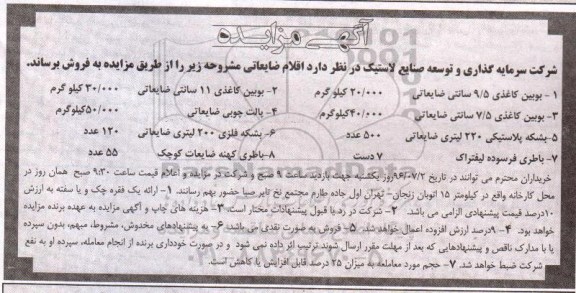 آگهی مزایده
شرکت سرمایه گذاری و توسعه صنایع لاستیک در نظر دارد اقلام ضایعاتی مشروحه زیر را از طریق مزایده به فروش برساند.
۱ - بوبین کاغذی ۹/۵ سانتی ضایعاتی ۲۰/۰۰۰ کیلو گرم ۲- بوبین کاغذی ۱۱ سانتی ضایعاتی ۳۰/۰۰۰ کیلو گرم
۳- بوبین کاغذی ۷/۵ سانتی ضایعاتی ۴۰/۰۰۰کیلوگرم ۴- پالت چوبی ضایعاتی ۵۰/۰۰۰کیلوگرم
۵- بشکه پلاستیکی ۲۲۰ لیتری ضایعاتی ۵۰۰ عدد ۶- بشکه فلزی ۲۰۰ لیتری ضایعاتی ۱۲۰ عدد
۷- باطری فرسوده لیفتراک ۷ دست ۸-باطری کهنه ضایعات کوچک ۵۵ عدد
خریداران محترم می توانند در تاریخ ۹۶/۰۷/۲روز یکشنبه جهت بازدید ساعت ۹ صبح و شرکت در مزایده و اعلام قیمت ساعت ۹:۳۰ صبح همان روز در
محل کارخانه واقع در کیلومتر ۱۵ اتوبان زنجان- تهران اول جاده طارم مجتمع نخ تایر صبا حضور بهم رسانند. ۱- ارائه یک فقره چک و یا سفته به ارزش
۱۰درصد قیمت پیشنهادی الزامی می باشد. ۲- شرکت در رد یا قبول پیشنهادات مختار است. ۳- هزینه های چاپ و آگهی مزایده به عهده برنده مزایده
خواهد بود. ۴- ۹درصد ارزش افزوده اعمال خواهد شد. ۵- فروش به صورت نقدی می باشد. ۶- به پیشنهادهای مخدوش، مشروط، مبهم، بدون سپرده
یا با مدارک ناقص و پیشنهادهایی که بعد از مهلت مقرر ارسال شوند ترتیب اثر داده نمی شود و در صورت خودداری برنده از انجام معامله، سپرده او به نفع
شرکت ضبط خواهد شد. ۷- حجم مورد معامله به میزان ۲۵ درصد قابل افزایش یا کاهش است.